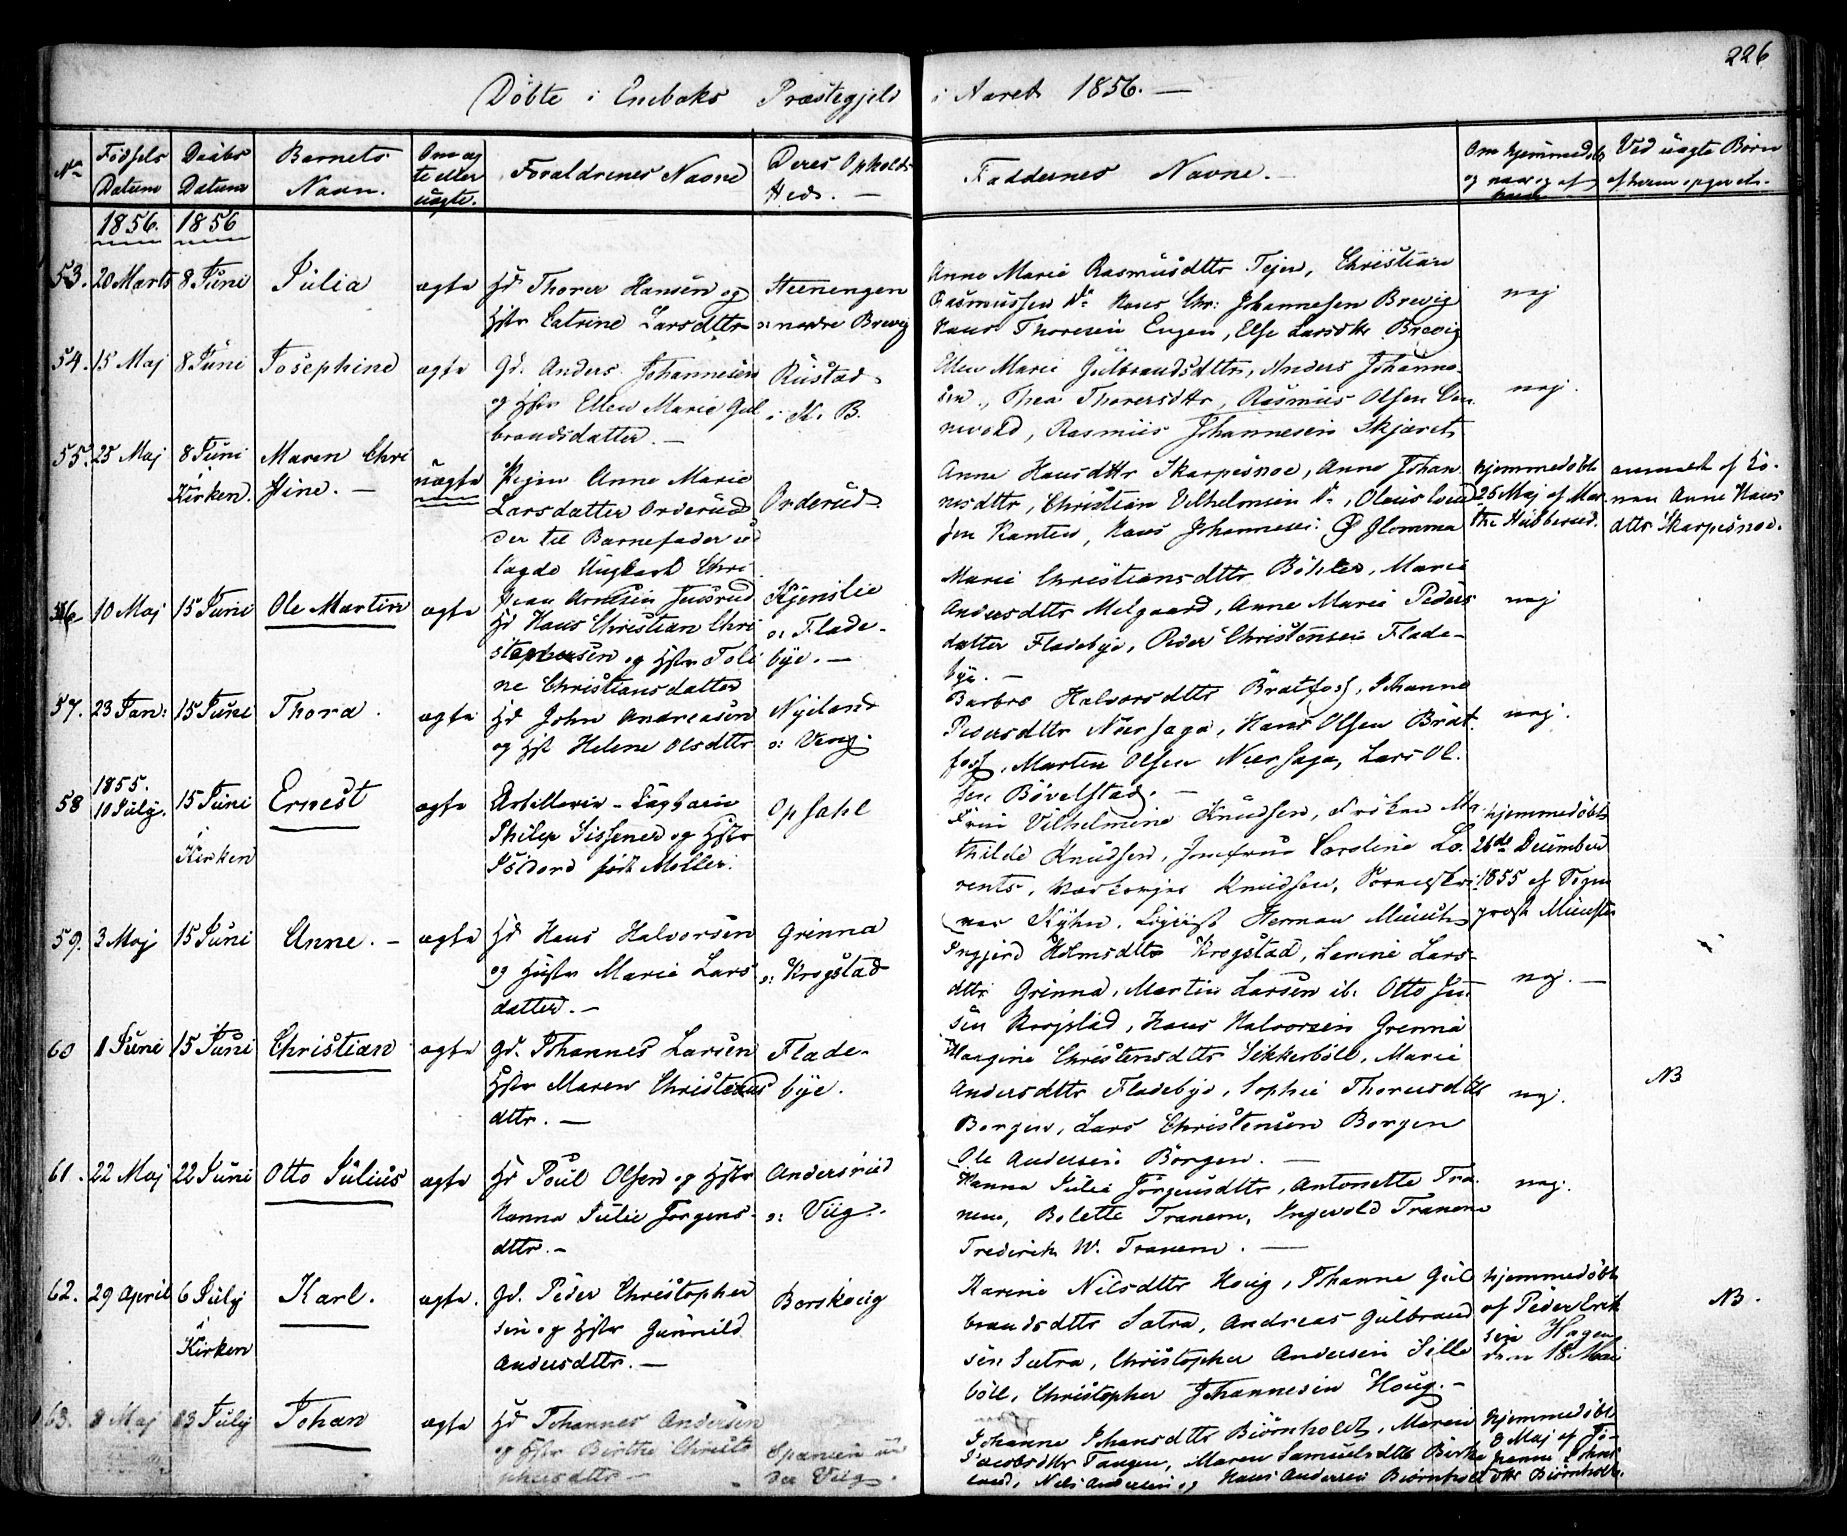 226
Döbte i Enebaks Præstegjeld i Aaret 1856. —
No
Födsels Datum
Daabs Datum
Barnets Navn.
Om ægte eller uægte.
Forældrenes Navne
Deres Opholds Sted. —
Faddernes Navne. —
Om hjemmedöbt og naar og af hvem
Ved uægte Börn af hvem opgivet.
1856. 1856
53. 20 Marts 8 Juni Julia ægte Hd Thorer Hansen og
Hstr Catrine Larsdttr
Steenengen
o: nordre Brevig
Anne Marie Rasmusdttr Tejen, Christian
Rasmussen do Hans Chr: Johannesen Brevig
Hans Thoresen Engen, Else Larsdttr Brevig
nej
54. 15 Maj 8 Juni Josephine ægte Gd. Anders Johannesen
og Hstr Ellen Marie Gul
brandsdatter. —
Rustad
i K. B.
Ellen Marie Gulbrandsdttr, Anders Johanne-
sen, Thea Thorersdttr, Rasmus Olsen
Rasmus Johannesen Skjæret
nej.
55. 25 Maj 8 Juni
i
Kirken.
Maren Chri
stine. —
uægte
Pigen Anne Marie
Larsdatter Orderud
der til Barnefader ud
lagde Ungkarl Chri
stian Arnesen
Orderud
Anne Hansdttr Skarpesnoe, Anne Johan
nesdttr, Christian Vilhelmsen do, Olaus
sen Kanten, Hans Johannesen Ö Glomma
hjemmedöbt
25 Maj af Mar
the Hubberud.
anmeldt af Ko-
nen Anne Hans
dttr Skarpesnoe.
56. 10 Maj 15 Juni Ole Martin ægte
Hd Hans Christian Chri
stophersen og Hstr Joli
ne Christiansdatter
Kjenslie
o: Flade-
bye. —
Marie Christiansdttr Böhler, Marie
Andersdttr Melgaard, Anne Marie Peders
datter Fladebye, Peder Christensen Flade-
bye. —
nej
57. 23 Jan: 15 Juni Thora. ægte Hd John Andreasen
og Hst Helene Olsdttr
Nyeland
o: Veng.
Barbro Halvorsdttr Bratfoss, Johanne
Pedersdttr Nersaga, Hans Olsen Brat
foss, Marten Olsen Nersaga, Lars Ol.
sen Bövelstad. —
nej.
58 1855.
10 July. 15 Juni
i
Kirken
Ernest ægte Artillerie-
Philip Sissener og Hstr
född Möller.
Opsahl
Frue Vilhelmine Knudsen, Fröken Ma
thilde Knudsen, Jomfrue Caroline Lo
rents, Knudsen,
Kyhn, Herman Munch
hjemmedöbt
26de December
1855 af Sogne
prest Münster
59. 3 Maj 15 Juni Anne. — ægte Hd Hans Halvorsen
og Hustr Marie Lars
datter. —
Grinna
o: Krogstad
Ingjerd Holmsdttr Krogstad, Lars-
dttr Grinna, Martin Larsen ib: Otto
sen Krogstad, Hans Halvorsen Grinna
nej. —
60 1 Juni 15 Juni Christian ægte Gd. Johannes Larsen
Hstr Maren Christens
dttr. —
Flade-
bye.
Christensdttr Sikkerböll, Marie
Andersdttr Fladebye, Sophie Thoresdttr
Borgen, Lars Christensen Borgen
Ole Andersen Borgen. —
nej.
NB
61. 22 Maj 22 Juni Otto Julius ægte Hd Poul Olsen og Hstr
Hanna Julie Jörgens-
dttr. —
Andersrud
o: Viig.
Hanna Julie Jörgensdttr, Antonette Tra-
nem, Bolette Tranem, Ingevold Tranem
Frederik W. Tranem. —
nej.
62. 29 April 6 July
i
Kirken
Karl. ægte. Gd. Peder Christopher
sen og Hstr Gunnild
Andersdttr. —
Borskoug
Karine Nilsdttr Houg, Johanne Gul
brandsdttr Sætra, Andreas Gulbrand
sen Sætra, Christopher Andersen Sille
böll, Christopher Johannesen Houg. —
hjemmedöbt
af Peder Erik
sen Hagen
den 18 Mai
NB.
63. 8 Maj 13 July Johan ægte Hd Johannes Andersen
og Hstr Birthe Christo
phersdttr —
Spanien un
der Viig.
Johanne Johansdttr Björnholdt, Maren
Jacobsdttr Tangen, Maren Samuelsdttr
Nils Andersen og Hans Andersen Björnholdt
hjemmedöbt
8 Maj af Jo-
hanne Johns
dttr Björnholt.